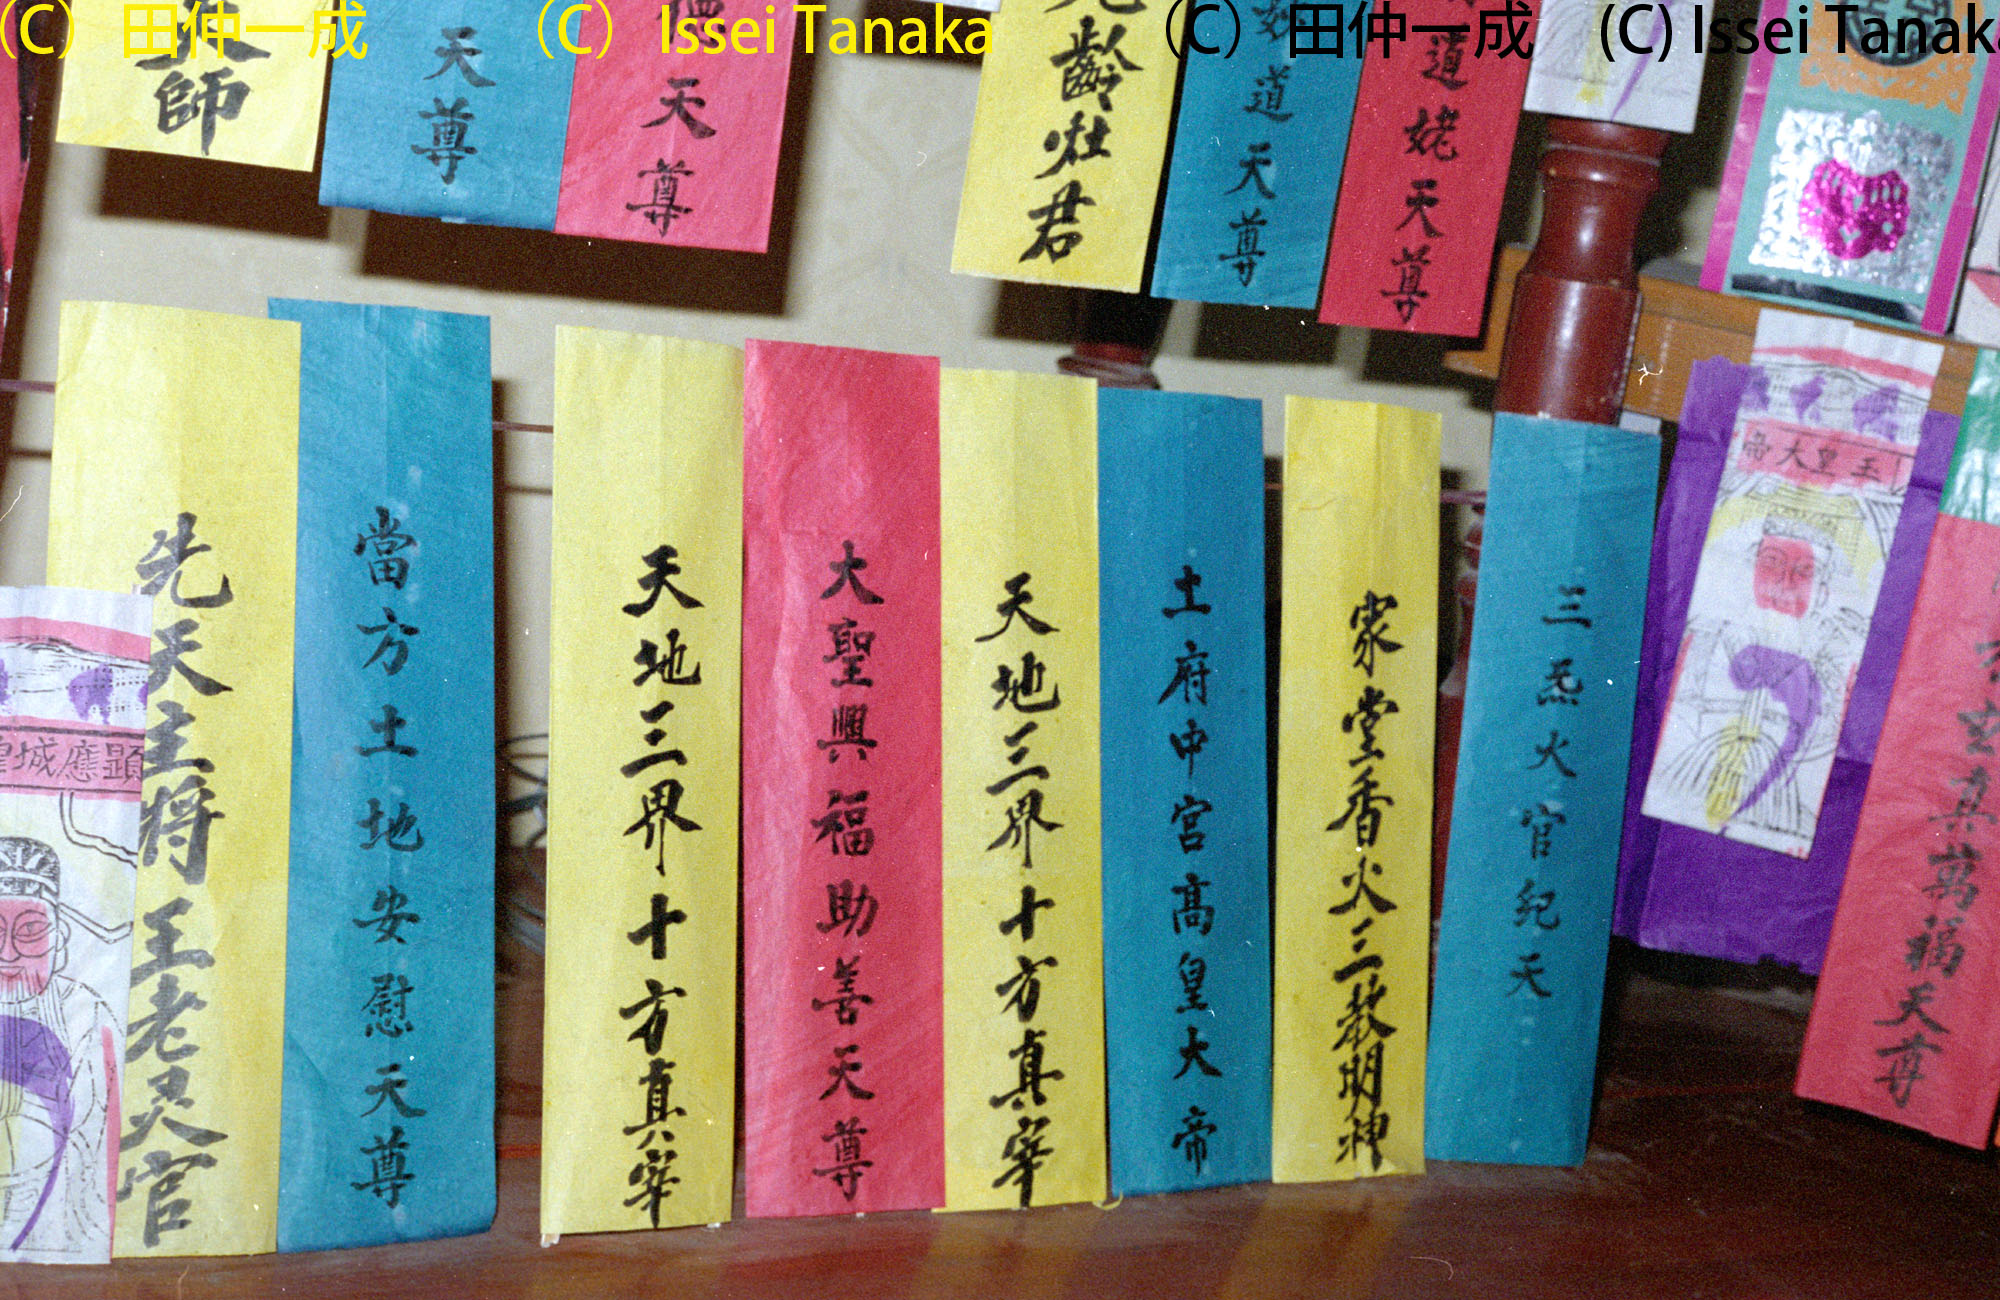 (C) 田仲一成 (C) Issei Tanaka (C) 田仲一成 (C) Issei Tanaka
師
天尊
天尊
齡灶君
妙道天尊
道姥天尊
先天主將王老灵官
當方土地安慰天尊
天地三界十方真宰
大聖興福助善天尊
天地三界十方真宰
土府中宮高皇大帝
家堂香火三教明神
三炁火官紀天
玉皇大帝
真萬福天尊
顯應城隍